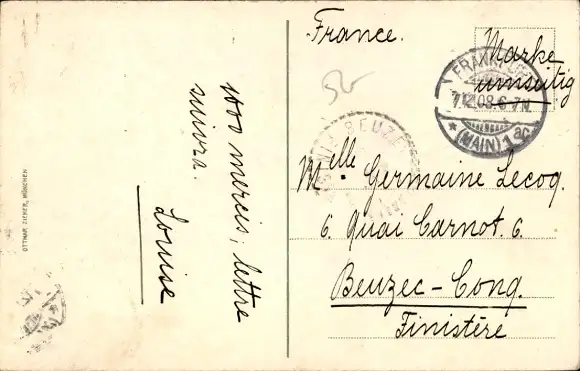 France.
Marke
umseitig
FRANKFURT
7.12.08.6-7N.
* (MAIN) 1 ac
BEUZE
Mlle Germaine Lecoq.
6. Quai Carnot. 6.
Beuzec-Conq.
Finistère
1000 mercis; lettre
suivra.
Louise
OTTMAR ZIEHER, MÜNCHEN